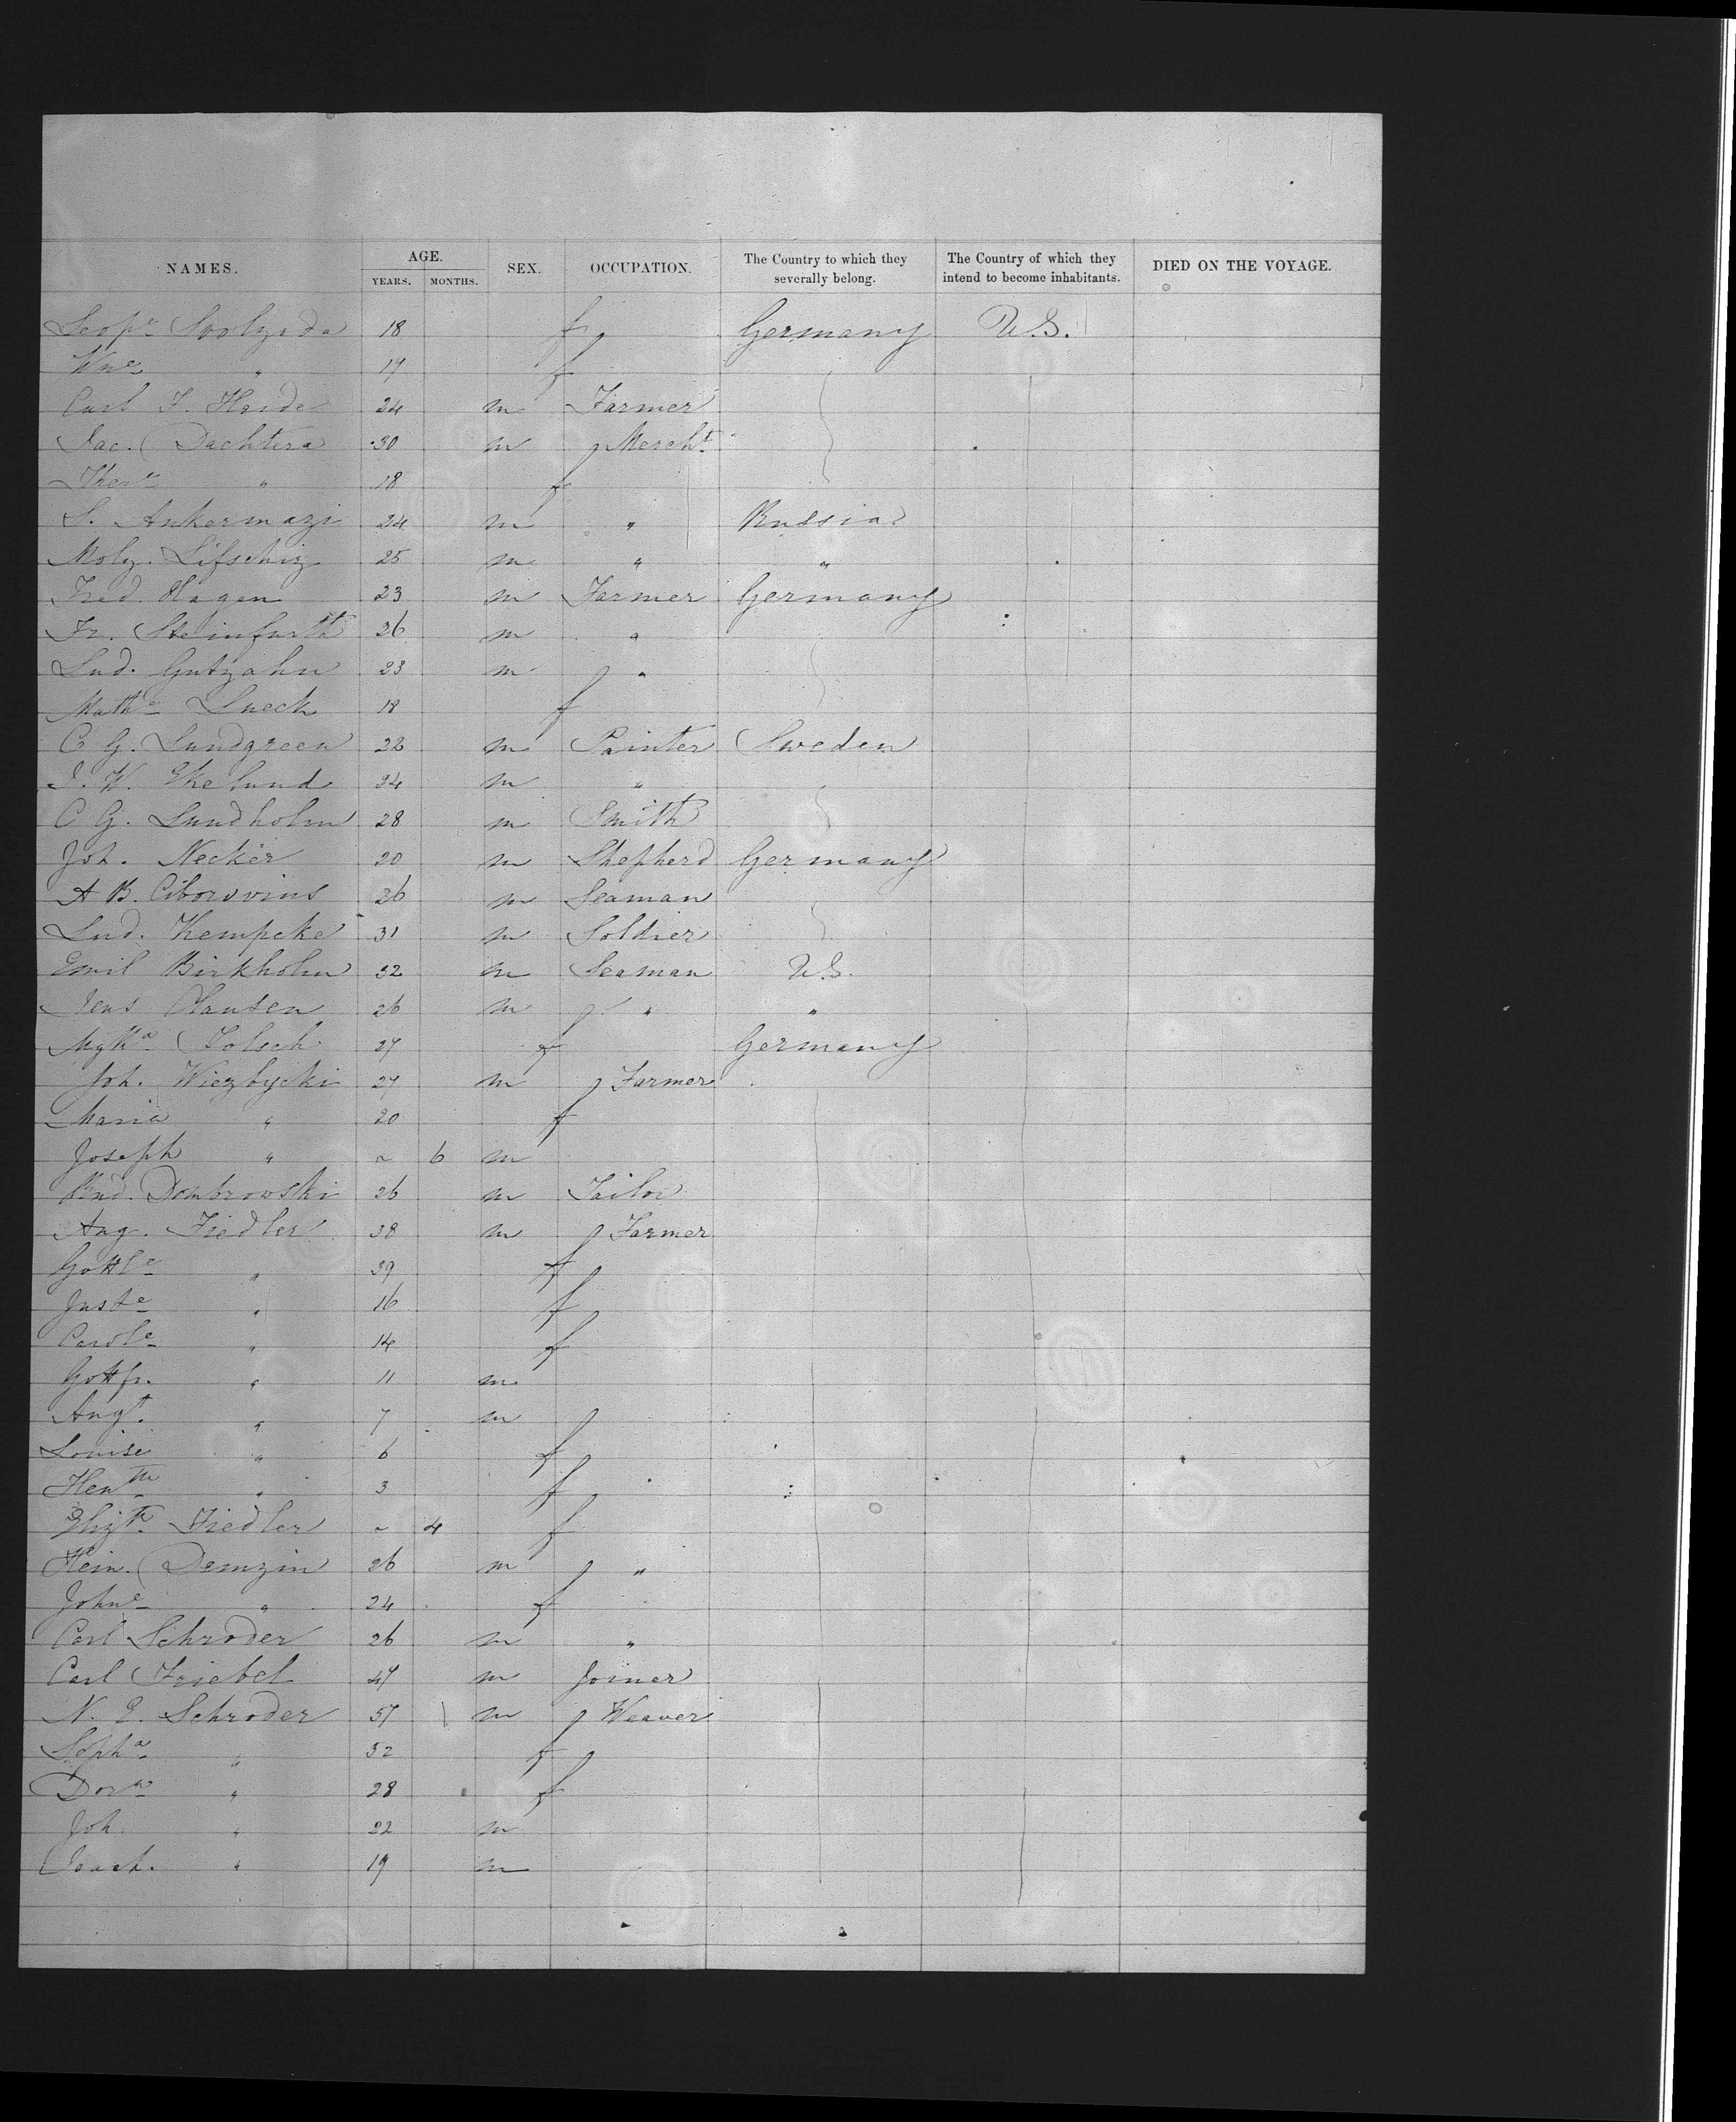 NAMES. AGE. YEARS. MONTHS. SEX. OCCUPATION. The Country to which they severally belong. The Country of which they intend to become inhabitants. DIED ON THE VOYAGE.
18 f Germany U.S.
Wne " 19 f
Carl F. Heide 24 m Farmer
Jac. Dachtera 30 m Mercht.
Therе " 18 f
S. Ankermazi 24 m " Russia
Lifschiz 25 m " "
Fred. Hagen 23 m Farmer Germany
Fr. Steinfurth 26 m "
Lud. Gutzahn 23 m "
Mathe Lueck 18 f
C G. Lundgreen 22 m Painter Sweden
J. W. Ekelund 34 m "
C G. Lundholm 28 m Smith
Joh. Necker 20 m Shepherd Germany
A B. 26 m Seaman
Lud. Kempcke 31 m Soldier
Emil Birkholm 32 m Seaman U.S.
Jens Hansen 26 m " "
Tolsch 27 f Germany
Joh. Wiezbycki 27 m Farmer
Maria " 20 f
Joseph " ~ 6 m
Dombrowski 26 m Tailor
Aug. Fiedler 38 m Farmer
Gottle " 39 f
Juste " 16 f
Carole " 14 f
Gottfr. " 11 m
Augt. " 7 m
Louise " 6 f
Hentte " 3 f
Elizth. Fiedler ~ 4 f
Hein. Demzin 26 m "
Johne " 24 f
Carl Schroder 26 m "
Carl Friebel 47 m Joiner
N. E. Schroder 57 m Weaver
Sopha " 52 f
Dora " 28 f
Joh. " 22 m
Joach. " 19 m